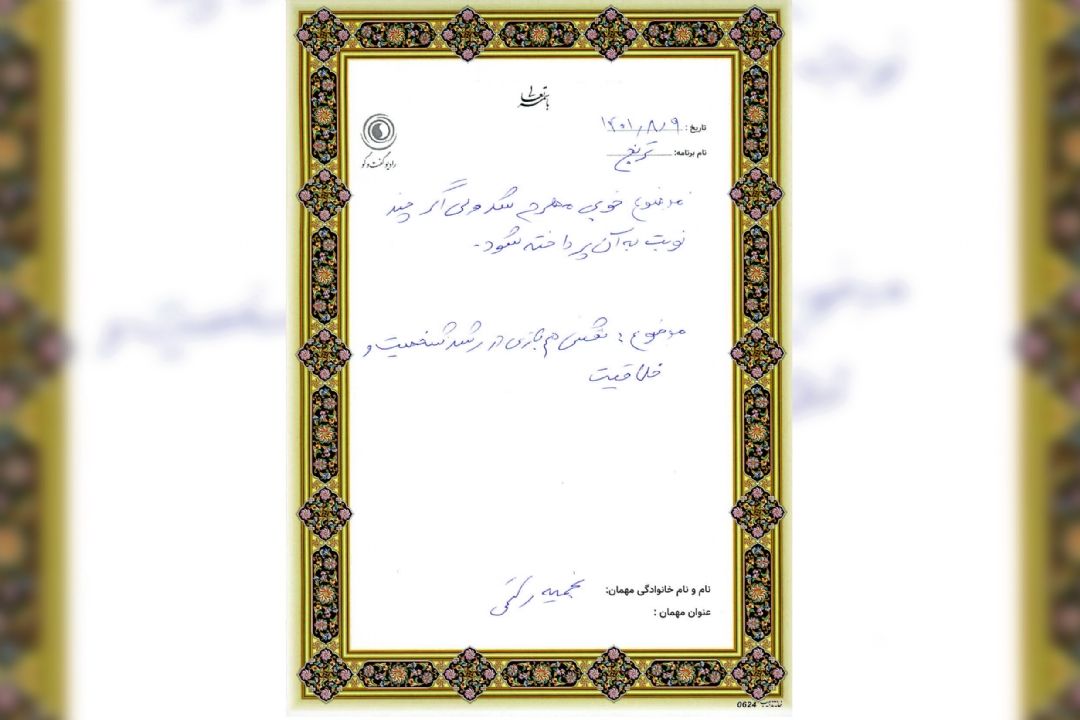 باسمه تعالی
رادیو گفت و گو
تاریخ: ۱۴۰۱/۸/۹
نام برنامه:
موضوع خوبی مطرح شد ولی اگر چند
نوبت به آن پرداخته شود.
موضوع: نقش هم بازی در رشد شخصیت و
خلاقیت
نام و نام خانوادگی مهمان: نجمیه رستمی
عنوان مهمان :
0624